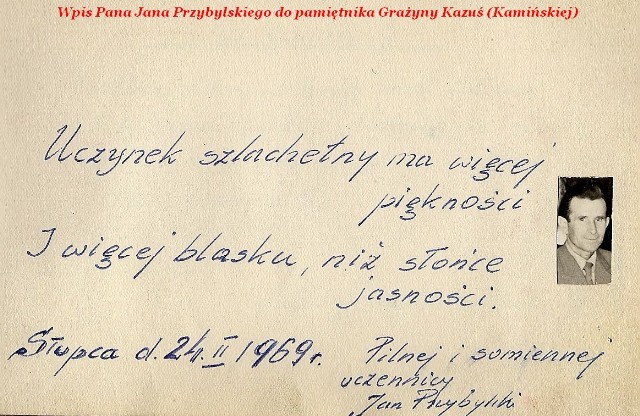 Wpis Pana Jana Przybylskiego do pamiętnika Grażyny Kazuś (Kamińskiej)
Uczynek szlachetny ma więcej
piękności
I więcej blasku, niż słońce
jasności.
Słupca d. 24. II 1969 r.
Pilnej i sumiennej
uczennicy
Jan Przybylski